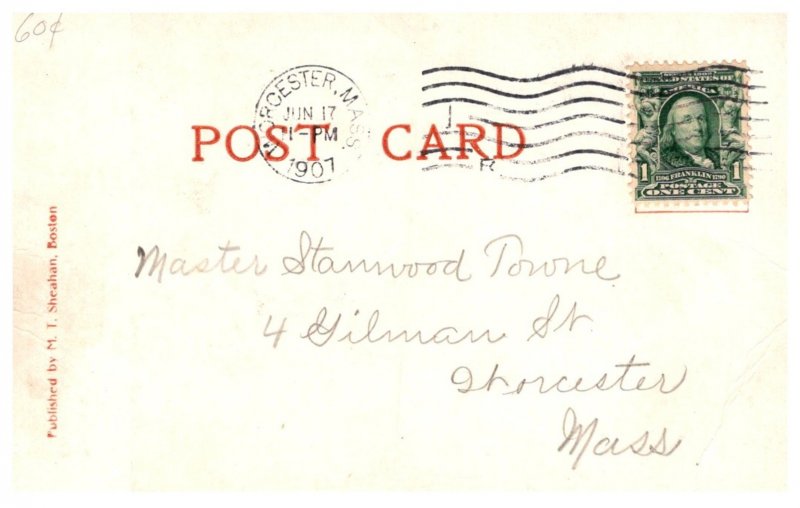 60¢
WORCESTER, MASS.
JUN 17
11-PM
1907
POST CARD
UNITED STATES OF
AMERICA
1 FRANKLIN 1
POSTAGE
ONE CENT
Published by M. T. Sheahan, Boston
Master Stanwood Towne
4 Gilman St.
Worcester
Mass